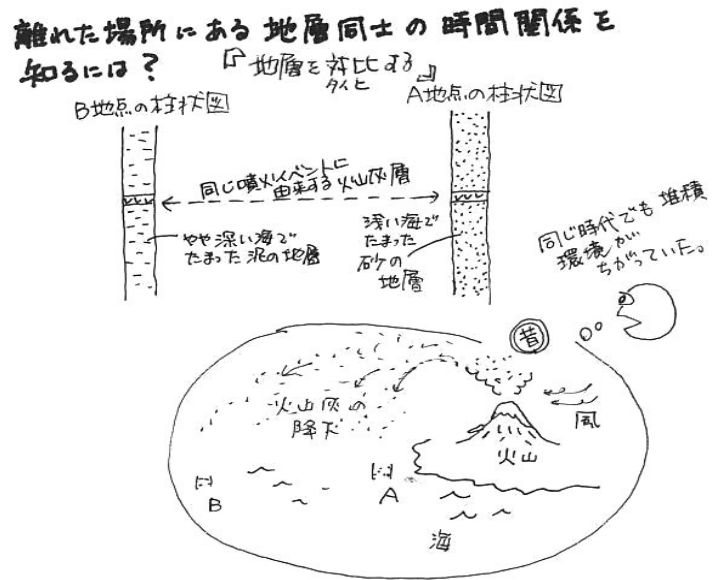 離れた場所にある地層同士の時間関係を
知るには?
『地層を対比する』
タイヒ
B地点の柱状図
A地点の柱状図
同じ噴火イベントに
由来する火山灰層
やや深い海で
たまった泥の地層
浅い海で
たまった
砂の
地層
同じ時代でも堆積
環境が
ちがっていた。
昔
火山灰の
降下
風
火山
B
A
海